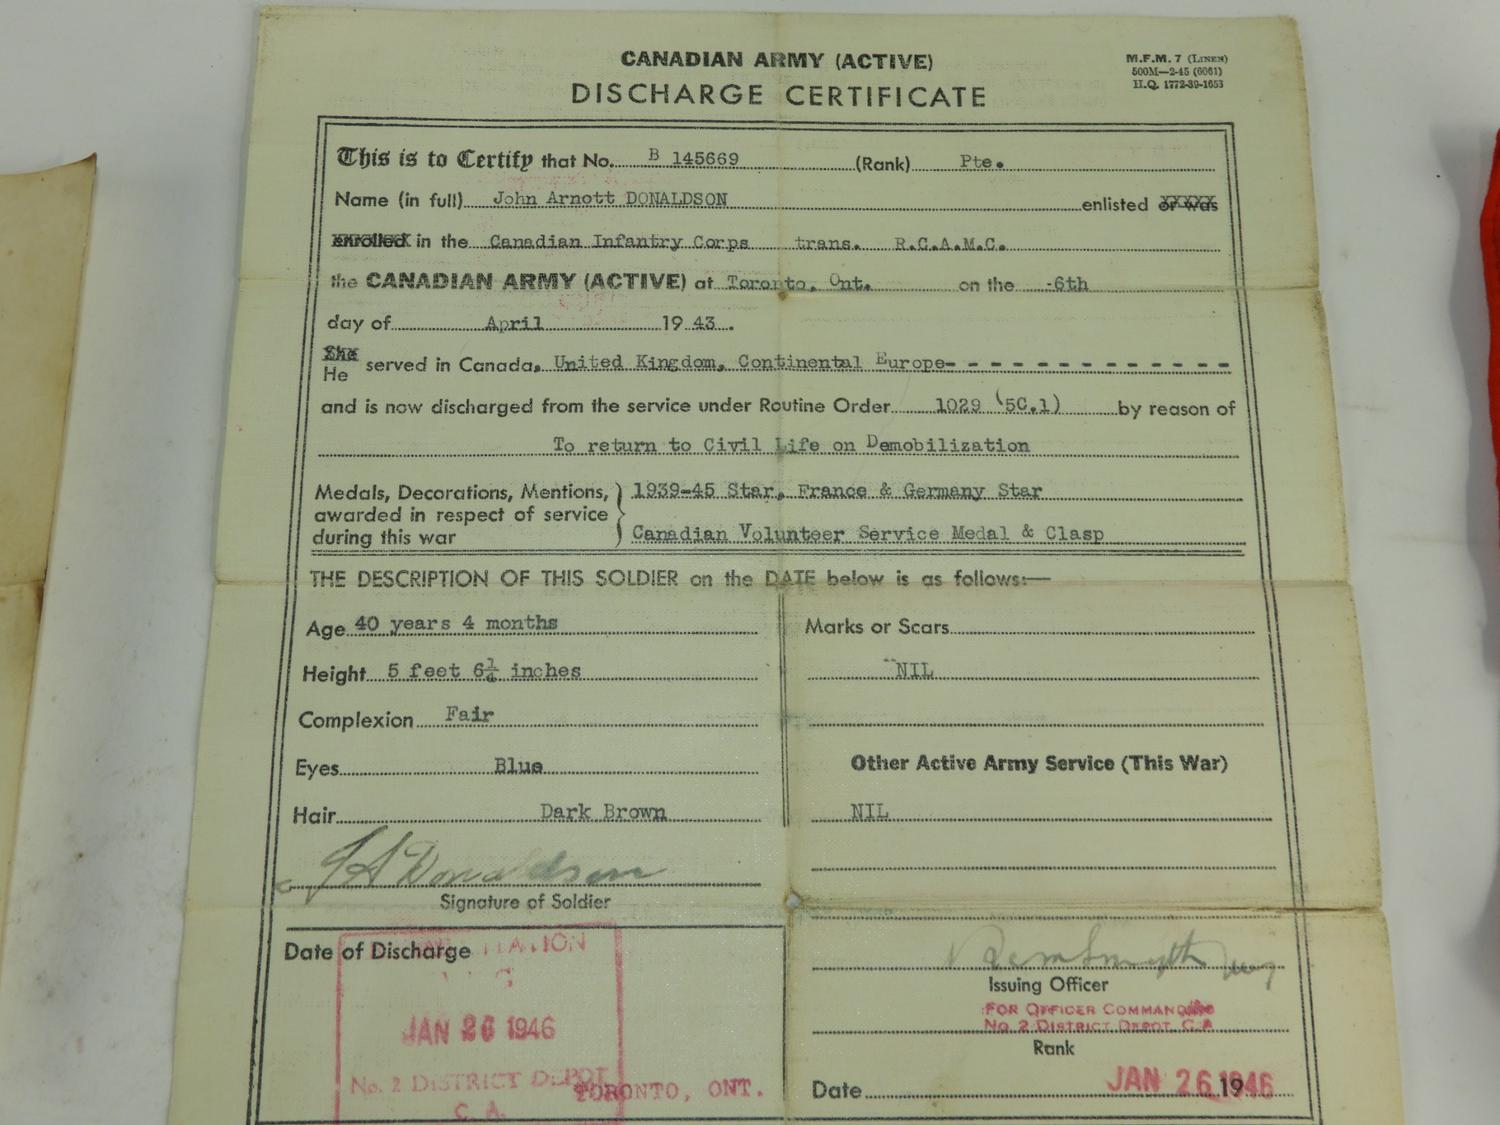 CANADIAN ARMY (ACTIVE)
DISCHARGE CERTIFICATE
M.F.M. 7 (LINEN)
500M—2-45 (6061)
H.Q. 1772-39-1653
This is to Certify that No. B 145669 (Rank) Pte.
Name (in full) John Arnott DONALDSON enlisted or was
enrolled in the Canadian Infantry Corps trans. R.C.A.M.C.
the CANADIAN ARMY (ACTIVE) at Toronto, Ont. on the -6th
day of April 19 43.
She
He served in Canada, United Kingdom, Continental Europe- - - - - - - - - - - - - -
and is now discharged from the service under Routine Order 1029 (5C.1) by reason of
To return to Civil Life on Demobilization
Medals, Decorations, Mentions, 1939-45 Star, France & Germany Star
awarded in respect of service
during this war Canadian Volunteer Service Medal & Clasp
THE DESCRIPTION OF THIS SOLDIER on the DATE below is as follows:—
Age 40 years 4 months
Height 5 feet 6¼ inches
Complexion Fair
Eyes Blue
Hair Dark Brown
J A Donaldson
Signature of Soldier
Marks or Scars
NIL
Other Active Army Service (This War)
NIL
Date of Discharge
JAN 26 1946
No. 2 DISTRICT DEPOT
C. A.
TORONTO, ONT.
Issuing Officer
FOR OFFICER COMMANDING
No. 2 DISTRICT DEPOT C.A
Rank
Date JAN 26 1946